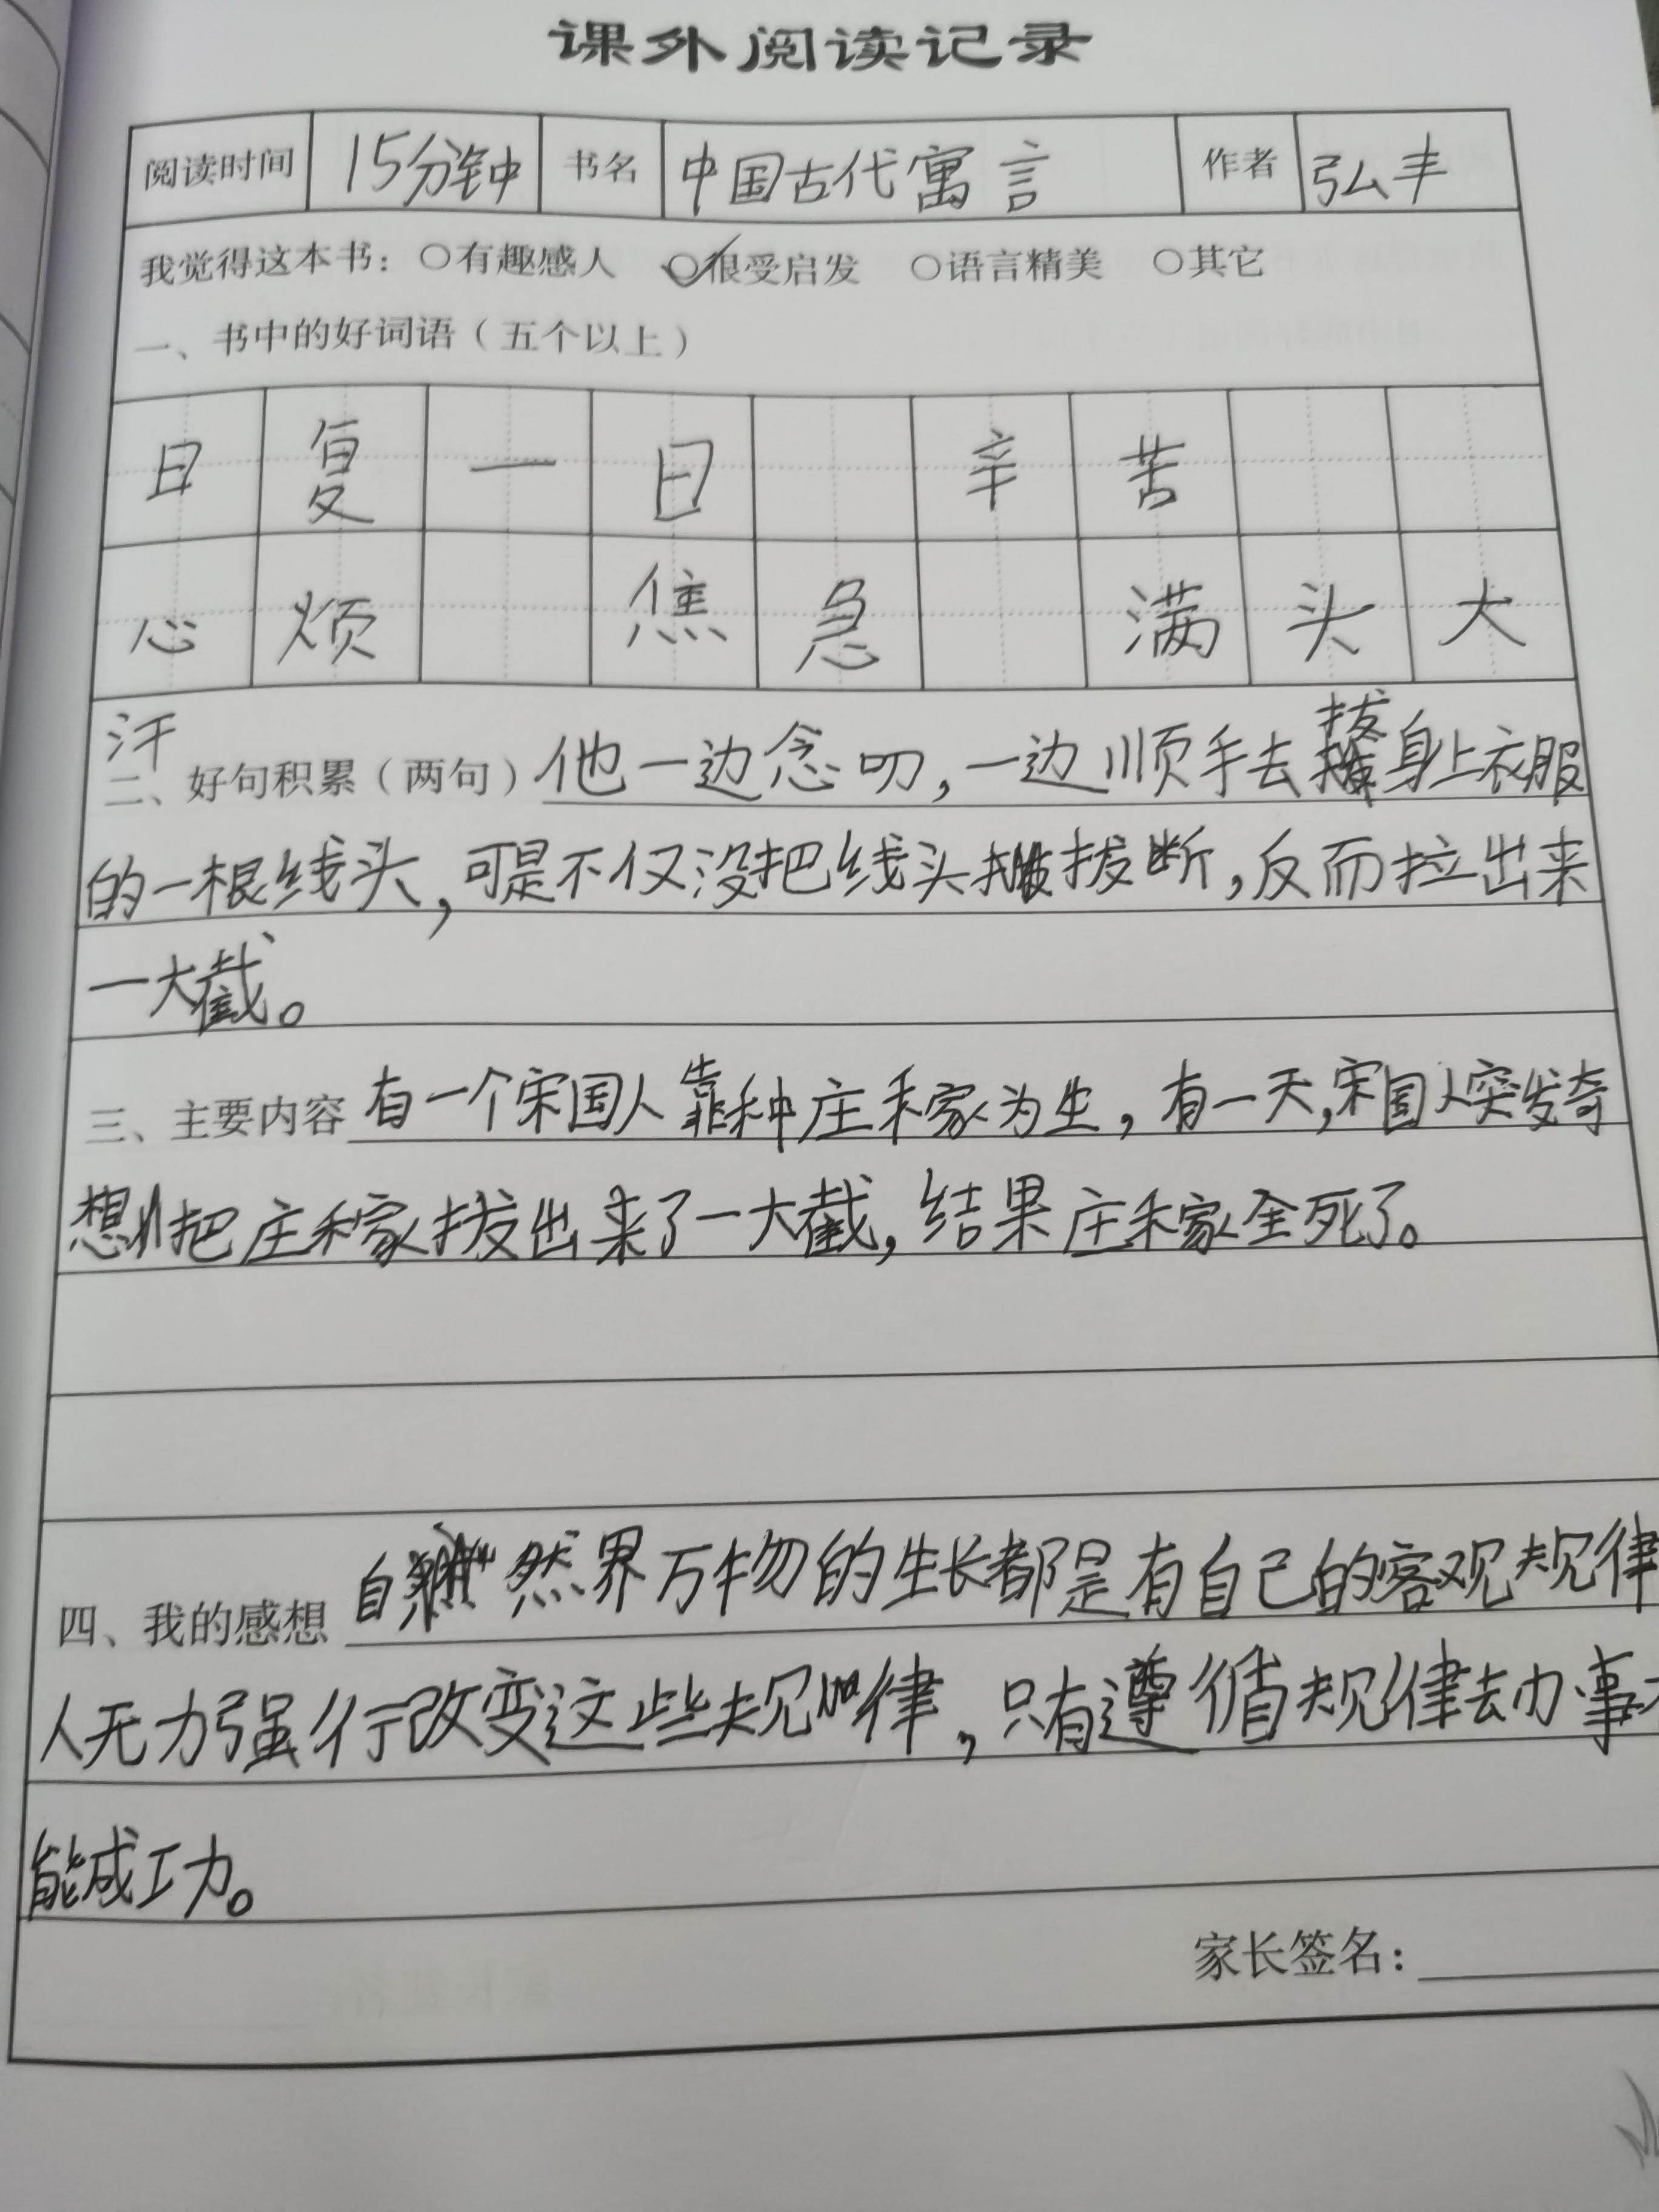 课外阅读记录
阅读时间 15分钟 书名 中国古代寓言 作者 弘丰
我觉得这本书：○有趣感人 ○很受启发 ○语言精美 ○其它
一、书中的好词语（五个以上）
日复一日 辛苦
心烦 焦急 满头大
汗
二、好句积累（两句）他一边念叨，一边顺手去拔身上衣服
的一根线头，可是不仅没把线头拔断，反而拉出来
一大截。
三、主要内容 有一个宋国人靠种庄禾家为生，有一天，宋国人突发奇
想把庄禾家拔出来了一大截，结果庄禾家全死了。
四、我的感想 自然界万物的生长都是有自己的客观规律
人无力强行改变这些规律，只有遵循规律去办事
能成功。
家长签名：